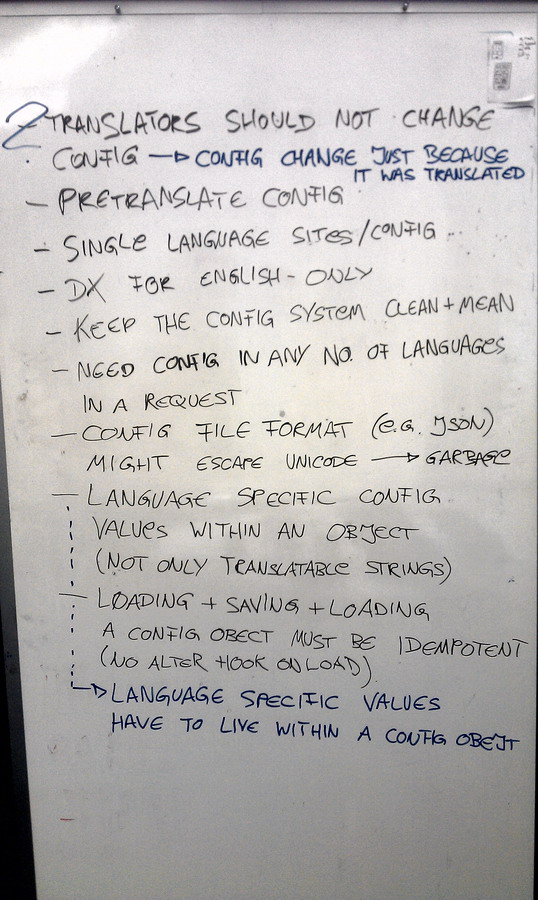 TRANSLATORS SHOULD NOT CHANGE
CONFIG → CONFIG CHANGE JUST BECAUSE
IT WAS TRANSLATED
- PRETRANSLATE CONFIG
- SINGLE LANGUAGE SITES/CONFIG ..
- DX FOR ENGLISH-ONLY
- KEEP THE CONFIG SYSTEM CLEAN + MEAN
- NEED CONFIG IN ANY NO. OF LANGUAGES
IN A REQUEST
- CONFIG FILE FORMAT (e.G. JSON)
MIGHT ESCAPE UNICODE → GARBAGE
- LANGUAGE SPECIFIC CONFIG
VALUES WITHIN AN OBJECT
(NOT ONLY TRANSLATABLE STRINGS)
- LOADING + SAVING + LOADING
A CONFIG OBECT MUST BE IDEMPOTENT
(NO ALTER HOOK ON LOAD)
→ LANGUAGE SPECIFIC VALUES
HAVE TO LIVE WITHIN A CONFIG OBEJT